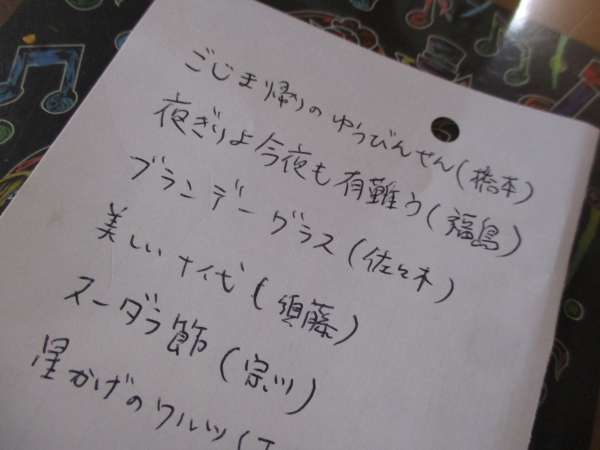 ごじま帰りのゆうびんせん(橋本)
夜ぎりよ今夜も有難う(福島)
ブランデーグラス(佐々木)
美しい十代(須藤)
スーダラ節(宗川)
星かげのワルツ(